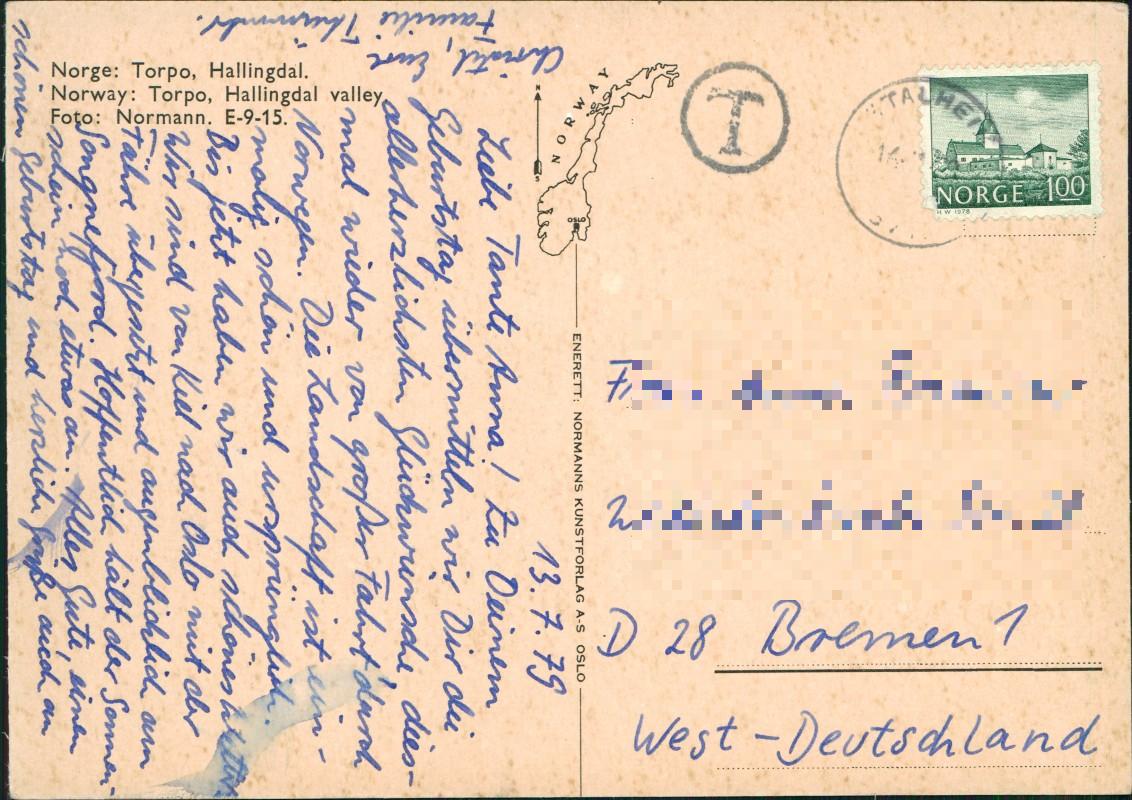 Norge: Torpo, Hallingdal.
Norway: Torpo, Hallingdal valley
Foto: Normann. E-9-15.
13.7.79
Liebe Tante Anna! Zu Deinem
Geburtstag übermitteln wir Dir die
allerherzlichsten Glückwünsche, dies-
mal wieder von großer Fahrt durch
Norwegen. Die Landschaft ist ein-
malig schön und ursprünglich.
Bis jetzt haben wir auch schönes Wetter
Wir sind von Kiel nach Oslo mit der
Fähre übergesetzt und augenblicklich am
Songnefjord. Hoffentlich hält der Sonnen-
schein noch etwas an. Alles Gute, einen
schönen Geburtstag und herzliche Grüße auch an
Familie
NORWAY
N
S
OSLO
ENERETT: NORMANNS KUNSTFORLAG A-S OSLO
T
STALHEIM
14
NORGE 100
H W 1978
D 28 Bremen 1
West-Deutschland